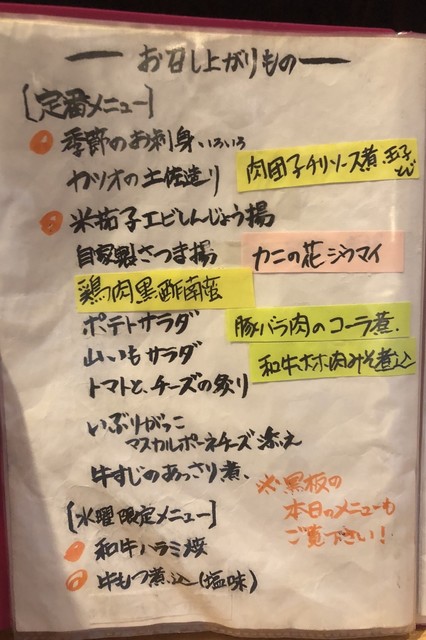 お召し上がりもの
[定番メニュー]
季節のお刺身いろいろ
カツオの土佐造り
肉団子チリソース煮.玉子とじ
米茄子エビしんじょう揚
自家製さつま揚
カニの花シウマイ
鶏肉黒酢南蛮
ポテトサラダ
豚バラ肉のコーラ煮.
山いもサラダ
和牛ホホ肉みそ煮込
トマトと、チーズの炙り
いぶりがっこ
マスカルポーネチーズ添え
牛すじのあっさり煮、
※黒板の
本日のメニューも
ご覧下さい!
[水曜限定メニュー]
和牛ハラミ焼
牛もつ煮込(塩味)